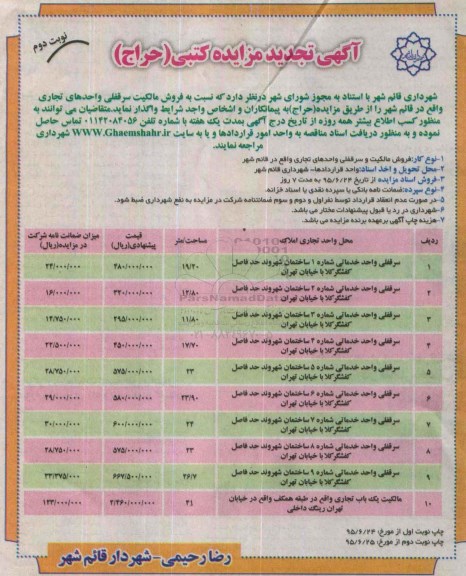 نوبت دوم
آگهی تجدید مزایده کتبی(حراج)
شهرداری قائم شهر با استناد به مجوز شورای شهر درنظر دارد که نسبت به فروش مالکیت سرقفلی واحدهای تجاری
واقع در قائم شهر را از طریق مزایده(حراج)به پیمانکاران و اشخاص واجد شرایط واگذار نماید.متقاضیان می توانند به
منظور کسب اطلاع بیشتر همه روزه از تاریخ درج آگهی بمدت یک هفته با شماره تلفن ۰۱۱۴۲۰۸۴۰۵۶ تماس حاصل
نموده و به منظور دریافت اسناد مناقصه به واحد امور قراردادها و یا به سایت WWW.Ghaemshahr.ir شهرداری
مراجعه نمایند.
۱-نوع کار:فروش مالکیت و سرقفلی واحدهای تجاری واقع در قائم شهر
۲-محل تحویل و اخذ اسناد:واحد قراردادها- شهرداری قائم شهر
۳-فروش اسناد مزایده از تاریخ ۹۵/۶/۲۴ به مدت ۷ روز
۴-نوع سپرده:ضمانت نامه بانکی یا سپرده نقدی یا اسناد خزانه.
۵-در صورت عدم انعقاد قرارداد توسط نفر اول و دوم و سوم ضمانتنامه شرکت در مزایده به نفع شهرداری ضبط شود.
۶-شهرداری در رد یا قبول پیشنهادات مختار می باشد.
۷-هزینه چاپ آگهی برعهده برنده مزایده می باشد.
ردیف محل واحد تجاری املاک مساحت/متر قیمت پیشنهادی(ریال) میزان ضمانت نامه شرکت در مزایده(ریال)
۱ سرقفلی واحد خدماتی شماره ۱ ساختمان شهروند حد فاصل کفشگرکلا با خیابان تهران ۱۹/۲۰ ۴۸۰/۰۰۰/۰۰۰ ۲۴/۰۰۰/۰۰۰
۲ سرقفلی واحد خدماتی شماره ۲ ساختمان شهروند حد فاصل کفشگرکلا با خیابان تهران ۱۲/۸۰ ۳۲۰/۰۰۰/۰۰۰ ۱۶/۰۰۰/۰۰۰
۳ سرقفلی واحد خدماتی شماره ۳ ساختمان شهروند حد فاصل کفشگرکلا با خیابان تهران ۱۱/۸۰ ۲۹۵/۰۰۰/۰۰۰ ۱۴/۷۵۰/۰۰۰
۴ سرقفلی واحد خدماتی شماره ۴ ساختمان شهروند حد فاصل کفشگرکلا با خیابان تهران ۱۷/۷۰ ۴۵۰/۰۰۰/۰۰۰ ۲۲/۵۰۰/۰۰۰
۵ سرقفلی واحد خدماتی شماره ۵ ساختمان شهروند حد فاصل کفشگرکلا با خیابان تهران ۲۳ ۵۷۵/۰۰۰/۰۰۰ ۲۸/۷۵۰/۰۰۰
۶ سرقفلی واحد خدماتی شماره ۶ ساختمان شهروند حد فاصل کفشگرکلا با خیابان تهران ۲۳/۹۰ ۵۸۰/۰۰۰/۰۰۰ ۲۹/۰۰۰/۰۰۰
۷ سرقفلی واحد خدماتی شماره ۷ ساختمان شهروند حد فاصل کفشگرکلا با خیابان تهران ۲۴ ۶۰۰/۰۰۰/۰۰۰ ۳۰/۰۰۰/۰۰۰
۸ سرقفلی واحد خدماتی شماره ۸ ساختمان شهروند حد فاصل کفشگرکلا با خیابان تهران ۲۳ ۵۷۵/۰۰۰/۰۰۰ ۲۸/۷۵۰/۰۰۰
۹ سرقفلی واحد خدماتی شماره ۹ ساختمان شهروند حد فاصل کفشگرکلا با خیابان تهران ۲۶/۷ ۶۶۷/۵۰۰/۰۰۰ ۳۳/۳۷۵/۰۰۰
۱۰ مالکیت یک باب تجاری واقع در طبقه همکف واقع در خیابان تهران رینگ داخلی ۴۱ ۲/۴۶۰/۰۰۰/۰۰۰ ۱۲۳/۰۰۰/۰۰۰
چاپ نوبت اول از مورخ: ۹۵/۶/۲۴
چاپ نوبت دوم از مورخ: ۹۵/۶/۲۵
رضا رحیمی-شهردار قائم شهر